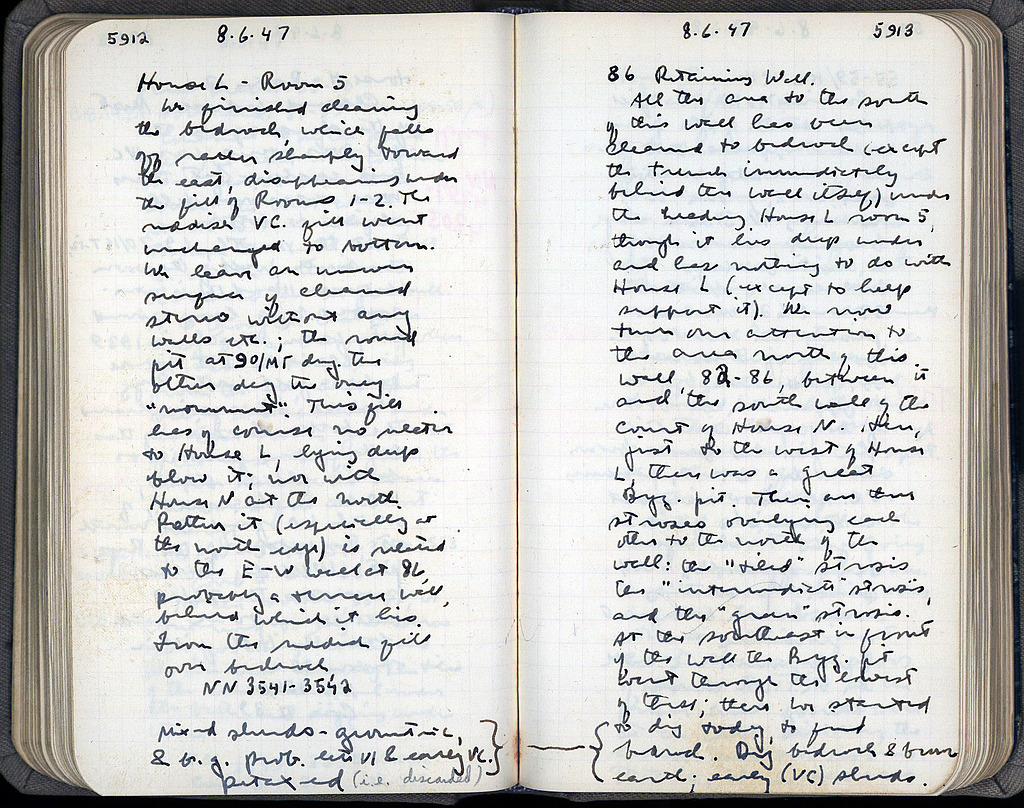 5912 8.6.47
House L - Room 5
We finished cleaning
the bedrock which falls
off rather sharply toward
the east, disappearing under
the fill of Rooms 1-2. The
reddish VC. fill went
unchanged to bottom.
We leave an uneven
surface of cleaned
stereo without any
walls etc.; the round
pit at 90/ΜΓ dug the
other day the only
"monument". This fill
has of course no relation
to House L, lying deep
below it; nor with
House N at the north.
Rather it (especially at
the north edge) is related
to the E-W wall at 86,
probably a terrace wall,
behind which it lies.
From the reddish fill
over bedrock
NN 3541-3542
Mixed sherds - geometric,
& b.g. prob. late VI & early VC.
potaxed (i.e. discarded)
8.6.47 5913
86 Retaining Wall.
All the area to the south
of this wall has been
cleaned to bedrock (except
the trench immediately
behind the wall itself) under
the heading House L room 5,
though it lies deep under
and has nothing to do with
House L (except to help
support it). We now
turn our attention to
the area north of this
wall 82-86, between it
and the south wall of the
court of House N. Here,
just to the west of House
L, there was a great
Byz. pit. There are three
stroses overlying each
other to the north of the
wall: the "tiled" strosis
the "intermediate" strosis,
and the "green" strosis.
At the southeast in front
of the wall the Byz. pit
went through the lowest
of these; there we started
to dig today to find
bedrock. Dug bedrock & brown
earth; early (VC) sherds.